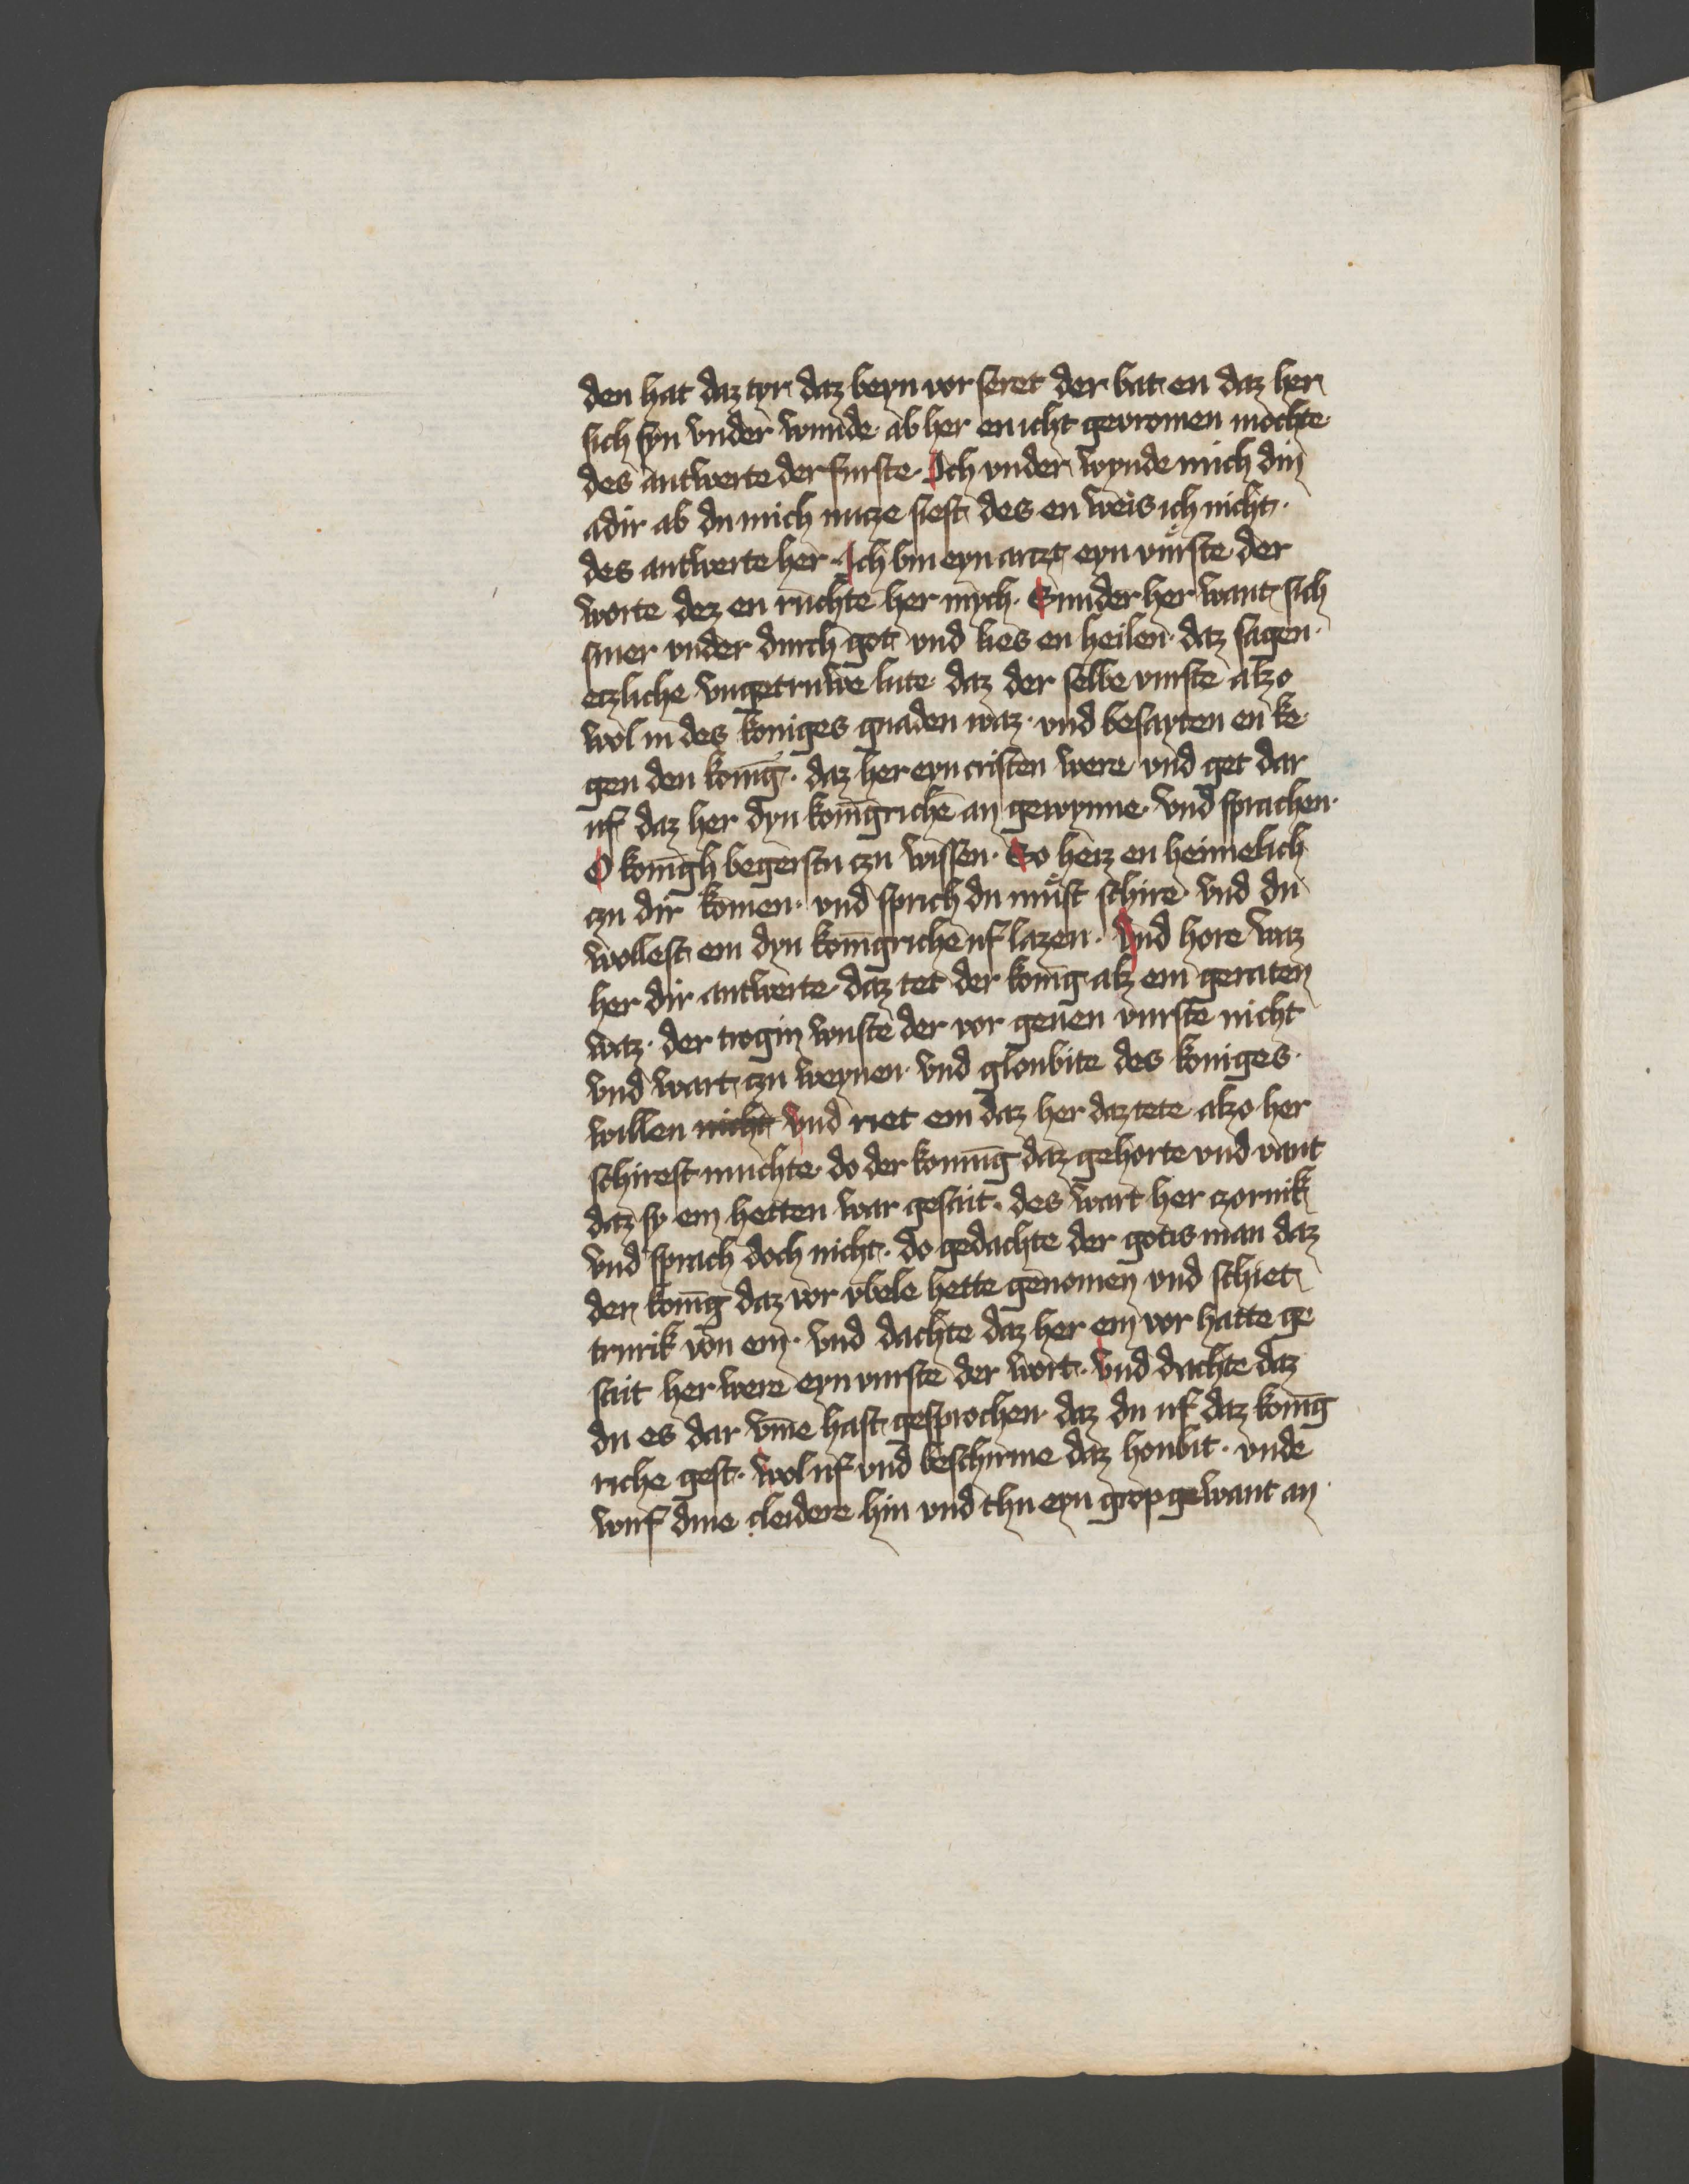 den hat daz tyr daz beyn vor seret der bat en daz her
sich syn vnder wunde ab her en icht gevromen mochte
des antwerte der furste · Ich vnder wynde mich din
adir ab du mich nutze siest des en weis ich nicht ·
des antwerte her · Ich bin eyn arczt eyn vuͤrste der
worte dez en ruchte her mych · Sunder her want sich
siner vnder durch got vnd lies en heilen · daz sagen ·
etzliche vngetruwe lute daz der selbe vurste alzo
wol in des koniges gnaden waz · vnd besayten en ke
gen den konig̅ · daz her eyn cristen were vnd get dar
uf daz her dyn konig̅riche an gewynne · vnd sprachen ·
O konigh begerstu czu wissen · So heiz en heimelich
czu dir komen · vnd sprich du muͤst schire vnd du
wollest em dyn konig̅riche uf lazen · Vnd hore waz
her dir antwerte daz tet der konig̅ alz em geraten
waz · der trogin wuste der vor geuen vurste nicht
vnd wart czu weynen · vnd gloubite des koniges ·
willen nicht vnd riet em daz her daz tete alzo her
schirest muchte do der konnig̅ daz gehorte vnd vant
daz sy em hetten war gesait · des wart her czornik
vnd sprach doch nicht · do gedachte der gotis man daz
der konig̅ daz vor vbele hette genomen vnd schiet
trurik von em · vnd dachte daz her em vor hatte ge
sait her were eyn vurste der wort · vnd dachte daz
du es dar vm̅e hast gesprochen daz du uf daz konig̅
riche gest · wol uf vnd beschirme daz houbit · vnde
wurf dine cleidere hin vnd thu eyn grop gewant an